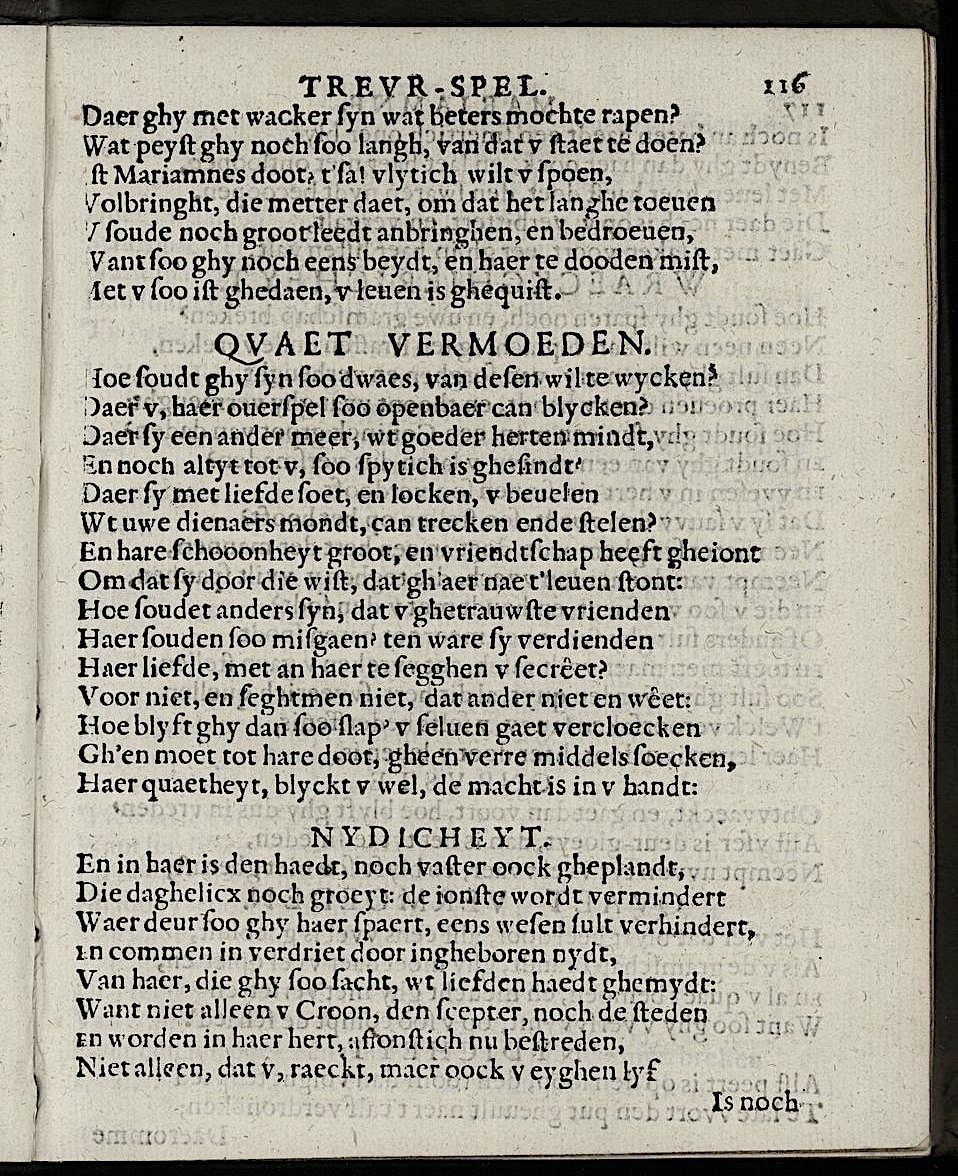 TREVR-SPEL. 116
Daer ghy met wacker syn wat beters mochte rapen?
Wat peyst ghy noch soo langh, van dat v staet te doen?
st Mariamnes doot, t'sa! vlytich wilt v spoen,
Volbringht, die metter daet, om dat het langhe toeuen
V soude noch groot leedt anbringhen, en bedroeuen,
Want soo ghy noch eens beydt, en haer te dooden mist,
Met v soo ist ghedaen, v leuen is ghequist.
QVAET VERMOEDEN.
Hoe soudt ghy syn soo dwaes, van desen wil te wycken?
Daer v, haer ouerspel soo openbaer can blycken?
Daer sy een ander meer, wt goeder herten mindt,
En noch altyt tot v, soo spytich is ghesindt'
Daer sy met liefde soet, en locken, v beuelen
Wt uwe dienaers mondt, can trecken ende stelen?
En hare schooonheyt groot, en vriendtschap heeft gheiont
Om dat sy door die wist, dat gh'aer nae t'leuen stont:
Hoe soudet anders syn, dat v ghetrauwste vrienden
Haer souden soo misgaen? ten ware sy verdienden
Haer liefde, met an haer te segghen v secrêet?
Voor niet, en seghtmen niet, dat ander niet en wêet:
Hoe blyft ghy dan soo slap? v seluen gaet vercloecken
Gh'en moet tot hare doot, gheen verre middels soecken,
Haer quaetheyt, blyckt v wel, de macht is in v handt:
NYDICHEYT.
En in haer is den haedt, noch vaster oock gheplandt,
Die daghelicx noch groeyt: de ionste wordt vermindert
Waer deur soo ghy haer spaert, eens wesen sult verhindert,
En commen in verdriet door ingheboren nydt,
Van haer, die ghy soo sacht, wt liefden haedt ghemydt:
Want niet alleen v Croon, den scepter, noch de steden
En worden in haer hert, afionstich nu bestreden,
Niet alleen, dat v, raeckt, maer oock v eyghen lyf
Is noch